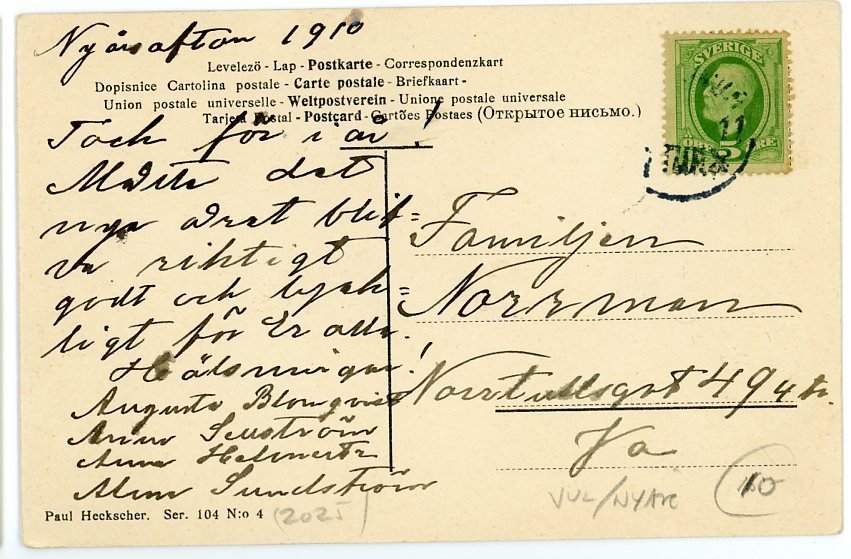 Nyårsafton 1910
Levelezö - Lap - Postkarte - Correspondenzkart
Dopisnice Cartolina postale - Carte postale - Briefkaart -
Union postale universelle - Weltpostverein - Unione postale universale
Tarjeta Postal - Postcard - Cartões Postaes (Открытое письмо.)
Tack för i år!
Måtte det
nya året blif=
va riktigt
godt och lyck=
ligt för Er alla.
Hälsningar!
Augusta Blomqvist
Anna Sellström
Anna
Sundström
Paul Heckscher. Ser. 104 N:o 4
(2025)
SVERIGE
5
ÖRE
11
TUR
Familjen
Norrman
Norrtullsgat 49 4 tr.
Va
VUL/NYÅR
10